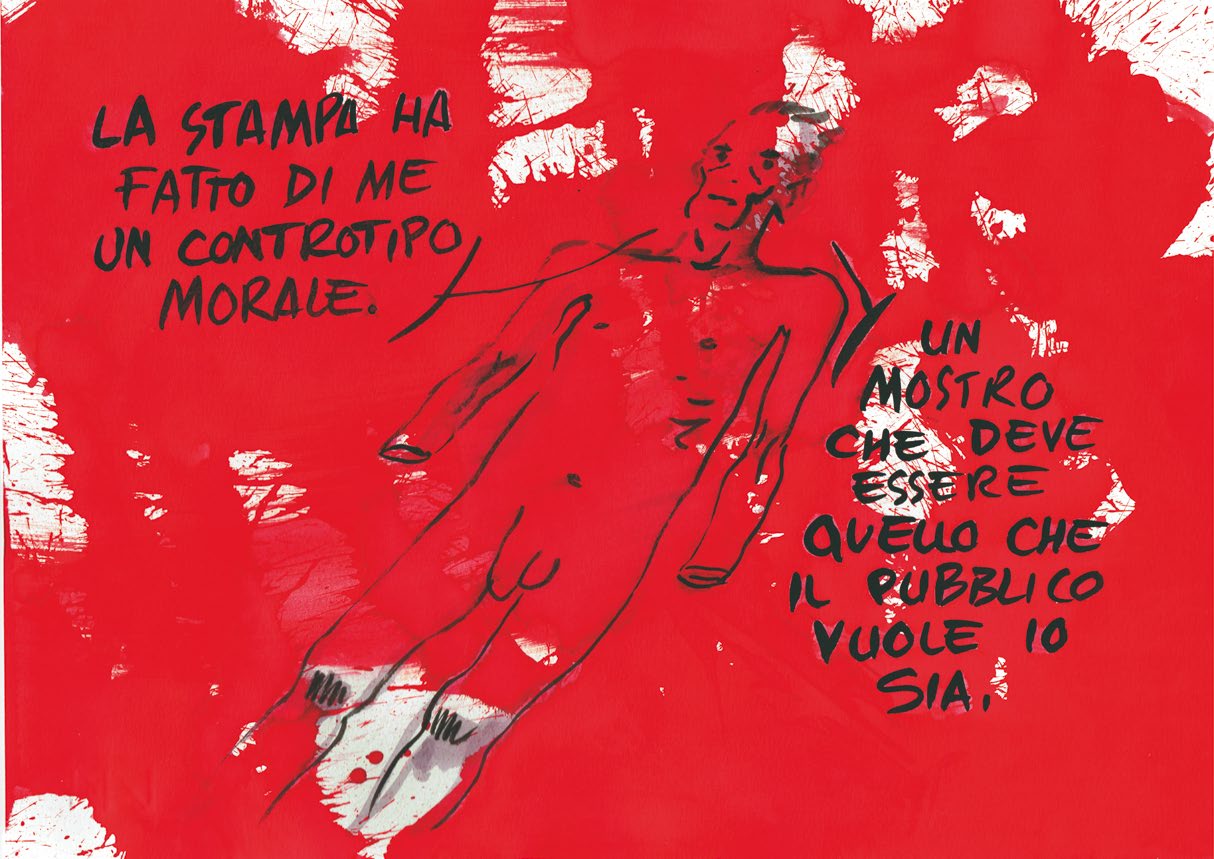 LA STAMPA HA
FATTO DI ME
UN CONTROTIPO
MORALE.
UN
MOSTRO
CHE DEVE
ESSERE
QUELLO CHE
IL PUBBLICO
VUOLE IO
SIA.